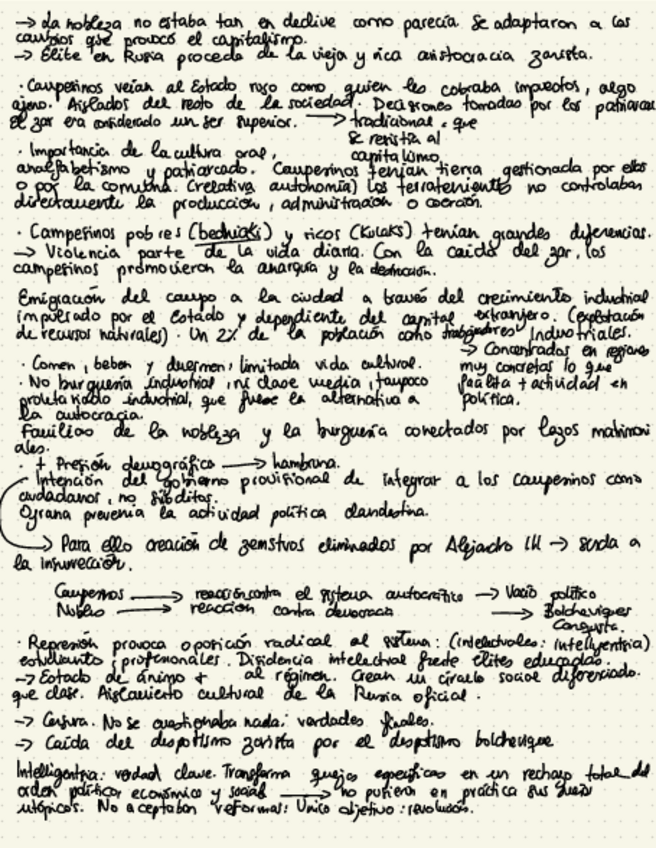 → La nobleza no estaba tan en declive como parecía. Se adaptaron a los
cambios que provocó el capitalismo.
→ Élite en Rusia procede de la vieja y rica aristocracia zarista.
· Campesinos veían al Estado ruso como quien les cobraba impuestos, algo
ajeno. Aislados del resto de la sociedad. Decisiones tomadas por los patriarcas
el zar era considerado un ser superior. → tradicional, que
se resistía al
capitalismo
· Importancia de la cultura oral,
analfabetismo y patriarcado. Campesinos tenían tierra gestionada por ellos
o por la comuna. (relativa autonomía) los terratenientes no controlaban
directamente la producción, administración o coerción.
· Campesinos pobres (bedniaki) y ricos (Kulaks) tenían grandes diferencias.
→ Violencia parte de la vida diaria. Con la caída del zar, los
campesinos promovieron la anarquía y la destrucción.
Emigración del campo a la ciudad a través del crecimiento industrial
impulsado por el Estado y dependiente del capital extranjero. (explotación
de recursos naturales). Un 2% de la población como trabajadores Industriales.
→ Concentrados en regiones
muy concretas lo que
facilita + actividad en
política.
· Comen, beben y duermen; limitada vida cultural.
· No burguesía industrial, ni clase media, tampoco
proletariado industrial, que fuese la alternativa a
la autocracia.
Familias de la nobleza y la burguesía conectados por lazos matrimoni
ales.
· + Presión demográfica → hambruna.
Intención del gobierno provisional de integrar a los campesinos como
ciudadanos, no súbditos.
Ojrana prevenía la actividad política clandestina.
→ Para ello creación de zemstvos eliminados por Alejandro III → senda a
la insurrección.
Campesinos → reacción contra el sistema autocrático → Vacío político
Nobles → reacción contra democracia → Bolcheviques
Conquista.
· Represión provoca oposición radical al sistema: (intelectuales: intelligentsia)
estudiantes, profesionales. Disidencia intelectual frente élites educadas.
→ Estado de ánimo + al régimen. Crean un círculo social diferenciado.
que clase. Aislamiento cultural de la Rusia oficial.
→ Censura. No se cuestionaba nada: verdades finales.
→ Caída del despotismo zarista por el despotismo bolchevique
Intelligentsia: verdad clave. Transforma quejas específicas en un rechazo total del
orden político, económico y social → no pusieron en práctica sus
utópicos. No aceptaban reformas: Único objetivo: revolución.